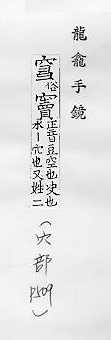 龍龕手鏡
俗
竇
正音豆空也决也
水丨穴也又姓二
(穴部
P509)